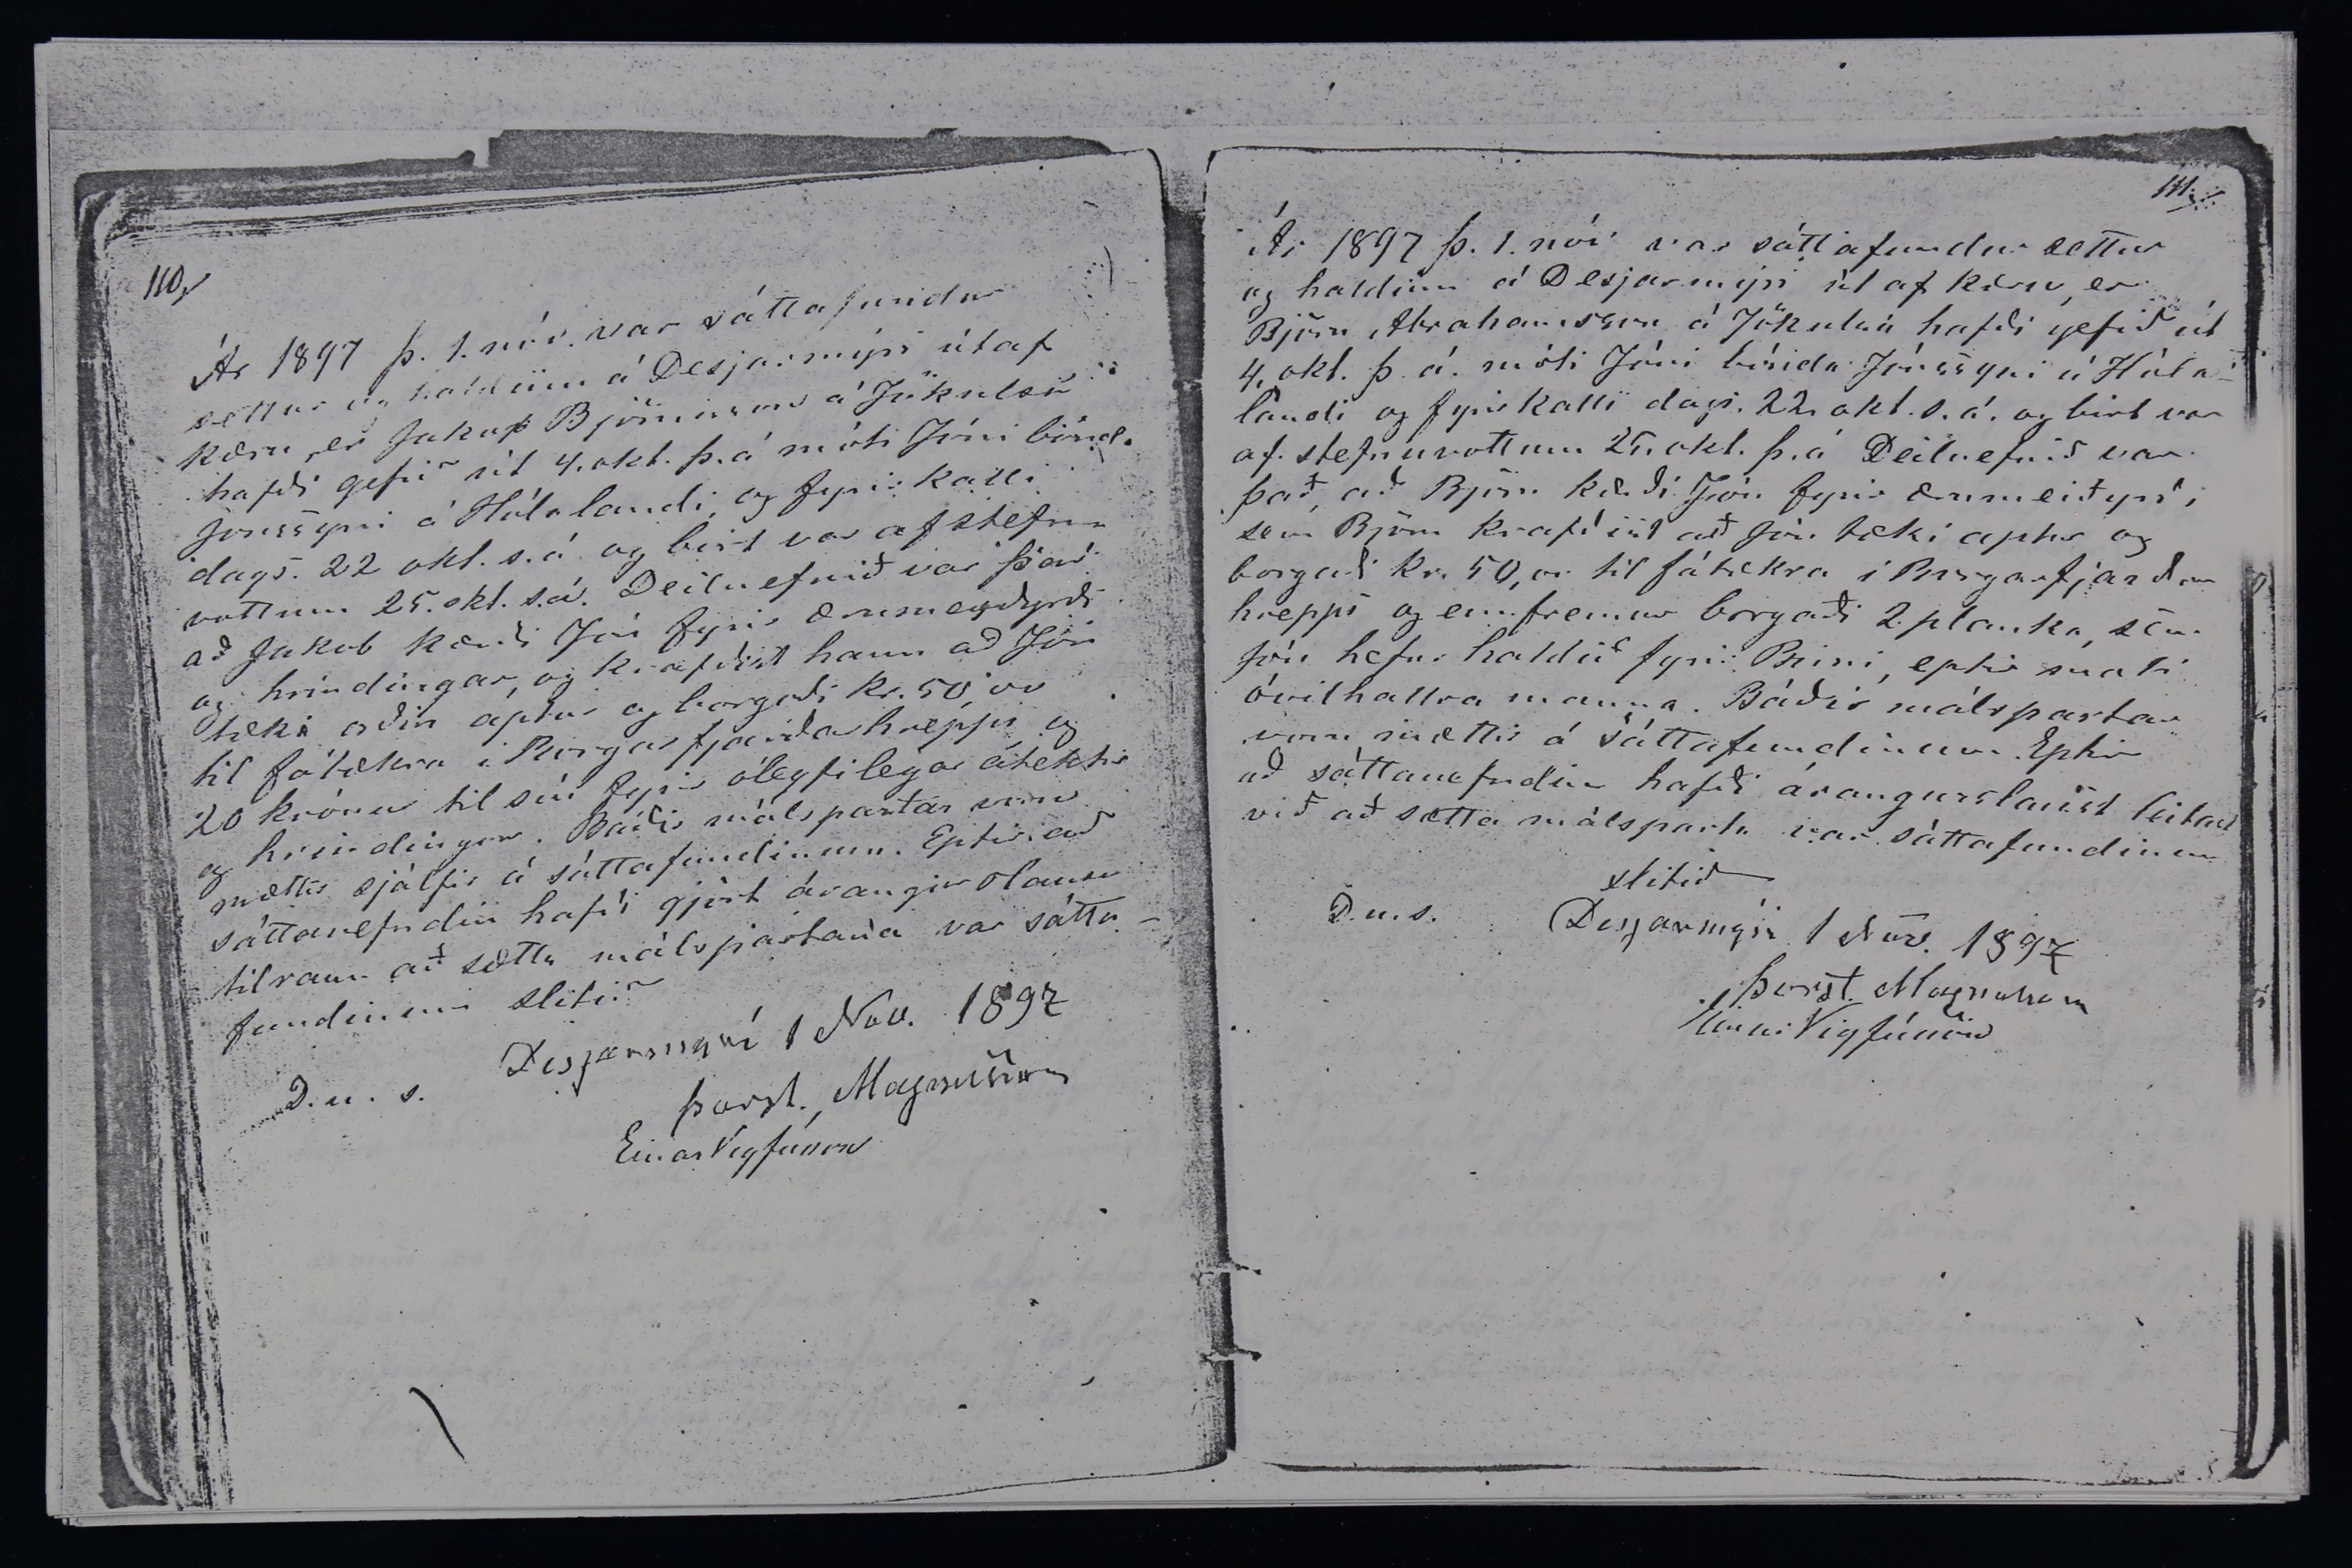 110,
Ár 1897 þ. 1. nóv. var sáttafundur
settur og haldinn á Desjarmýri útaf
kæru, er Jakop Björnsson á Jökulsá
hafði gefið út 4. okt. þ. á móti Jóni bónda
Jónssyni á Hólalandi, og fyrirkalli
dags. 22 okt. s. á og birt var af stefnu
vottum 25. okt. s.á. Deiluefnið var það
að Jakob kærði Jón fyrir ærumeyðyrði
og hrindingar, og krafðist hann að Jón
tæki orðin aptur og borgaði kr. 50,00
til fátækra í Borgarfjarðarhreppi og
20 krónur til sín fyrir óleyfilegar átektir
og hrindingar. Báðir málspartar voru
mættir sjálfir á sáttafundinum. Eptir að
sáttanefndin hafði gjört árangurslausu
tilraun að sætta málspartana var sátta-
fundinum slitið
D. u. s. Desjarmýri 1 Nov. 1897
Þorst. Magnússon
Einar Vigfússon
111,
Ár 1897 þ. 1. nóv var sáttafundur settur
og haldinn á Desjarmýri út af kæru, er
Björn Abrahamsson á Jökulsá hafði gefið út
4. okt. þ. á. móti Jóni bónda Jónssyni á Hóla-
landi og fyrirkalli dags. 22. okt. s. á. og birt var
af stefnuvottum 25. okt. þ. á Deiluefnið var
það, að Björn kærði Jón fyrir ærumeiðyrði,
sem Björn krafðist að Jón tæki aptur og
borgaði kr. 50,00 til fátækra í Borgarfjarðar
hreppi og ennfremur borgaði 2 planka, sem
Jón hefur haldið fyrir Birni, eptir mati
óvilhallra manna. Báðir málspartar
voru mættir á sáttafundinum. Eptir
að sáttanefndin hafði árangurslaust leitast
við að sætta málsparta var sáttafundinum
slitið
D. u. s. Desjarmýri 1 Nóv. 1897
Þorst. Magnússon
Einar Vigfússon